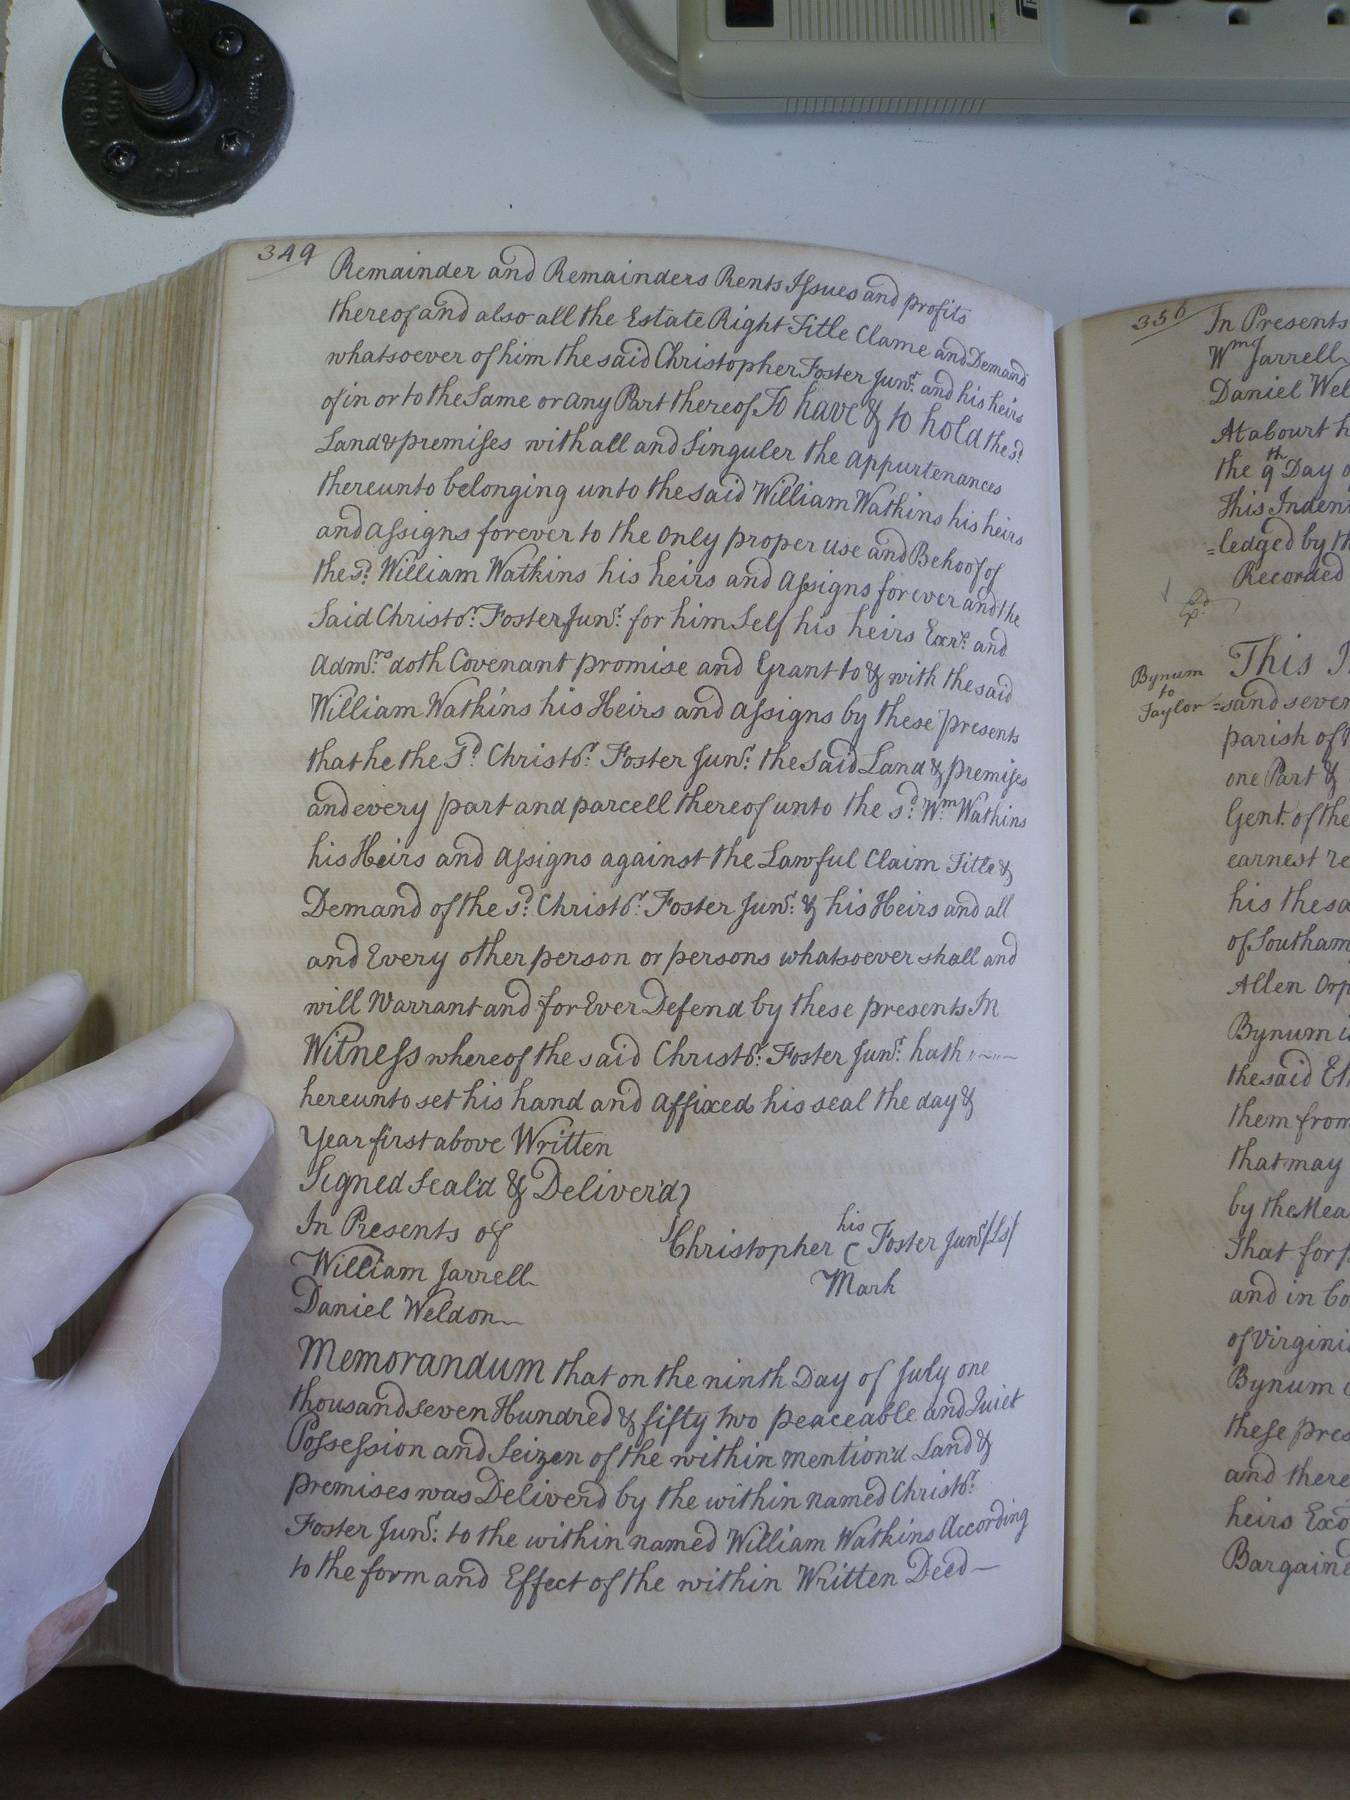 349
Remainder and Remainders Rents Issues and profits
thereof and also all the Estate Right Title Clame and Demand
whatsoever of him the said Christopher Foster Junr. and his heirs
of in or to the Same or any Part thereof To have & to hold the sd.
Land & premises with all and Singuler the appurtenances
thereunto belonging unto the said William Watkins his heirs
and assigns forever to the only proper use and Behoof of
the sd. William Watkins his heirs and assigns forever and the
Said Christor. Foster Junr. for him Self his heirs Exrs. and
Admrs. doth Covenant promise and Grant to & with the said
William Watkins his Heirs and assigns by these presents
that he the Sd. Christor. Foster Junr. the Said Land & premises
and every part and parcell thereof unto the sd. Wm. Watkins
his Heirs and assigns against the Lawful Claim Title &
Demand of the sd. Christor. Foster Junr. & his Heirs and all
and Every other person or persons whatsoever shall and
will Warrant and for Ever Defend by these presents In
Witness whereof the said Christor. Foster Junr. hath
hereunto set his hand and affixed his seal the day &
Year first above Written
Signed Seal'd & Deliver'd
In Presents of
Christopher his C Foster Junr. [Ls]
Mark
William Jarrell
Daniel Weldon
Memorandum that on the ninth Day of July one
thousand seven Hundred & fifty two peaceable and Quiet
Possession and Seizen of the within mention'd Land &
premises was Deliverd by the within named Christor.
Foster Junr. to the within named William Watkins According
to the form and Effect of the within Written Deed
356
In Presents
Wm Jarrell
Daniel Wel
At a Court h
the 9th Day o
This Inden
=ledged by th
Recorded
Bynum
to
Taylor
This I
=sand seven
parish of
one Part &
Gent. of the
earnest re
his the sa
of Southam
Allen Orp
Bynum
the said El
them from
that may
by the Mea
That for
and in Co
of Virgini
Bynum
these pres
and there
heirs Exo
Bargaine